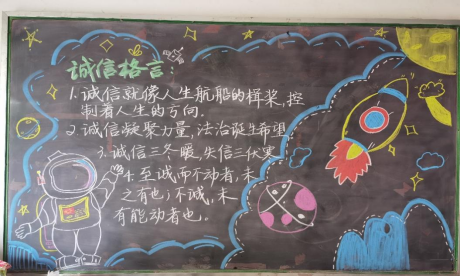 诚信格言:
1.诚信就像人生航船的桨,控
制着人生的方向.
2.诚信凝聚力量,法治诞生希望
3.诚信三冬暖,失信三伏寒
4.至诚而不动者,未
之有也;不诚,未
有能动者也。